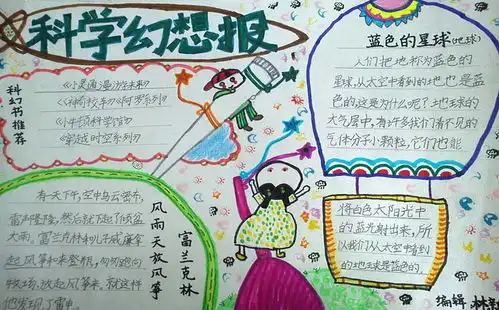 科学幻想报
科幻书推荐
《小灵通漫游未来》
《科学校车》《阿罗系列》
《小牛顿科学馆》
《穿越时空系列》
蓝色的星球(地球)
人们把地称为蓝色的
星球,从太空中看到的地也是蓝
色的,这是为什么呢?地球的
大气层中,有许多我们看不见的
气体分子小颗粒,它们也能
将白色太阳光中
的蓝光射出来,所
以我们从太空中看到
的地球是蓝色的。
富兰克林
风雨天放风筝
有一天下午,空中乌云密布,
雷声隆隆,然后就下起了倾盆
大雨。富兰克林和儿子威廉拿
起风筝和来登瓶,匆匆跑向
牧场,放起风筝来,就这样
他发现了雷电
编辑 林